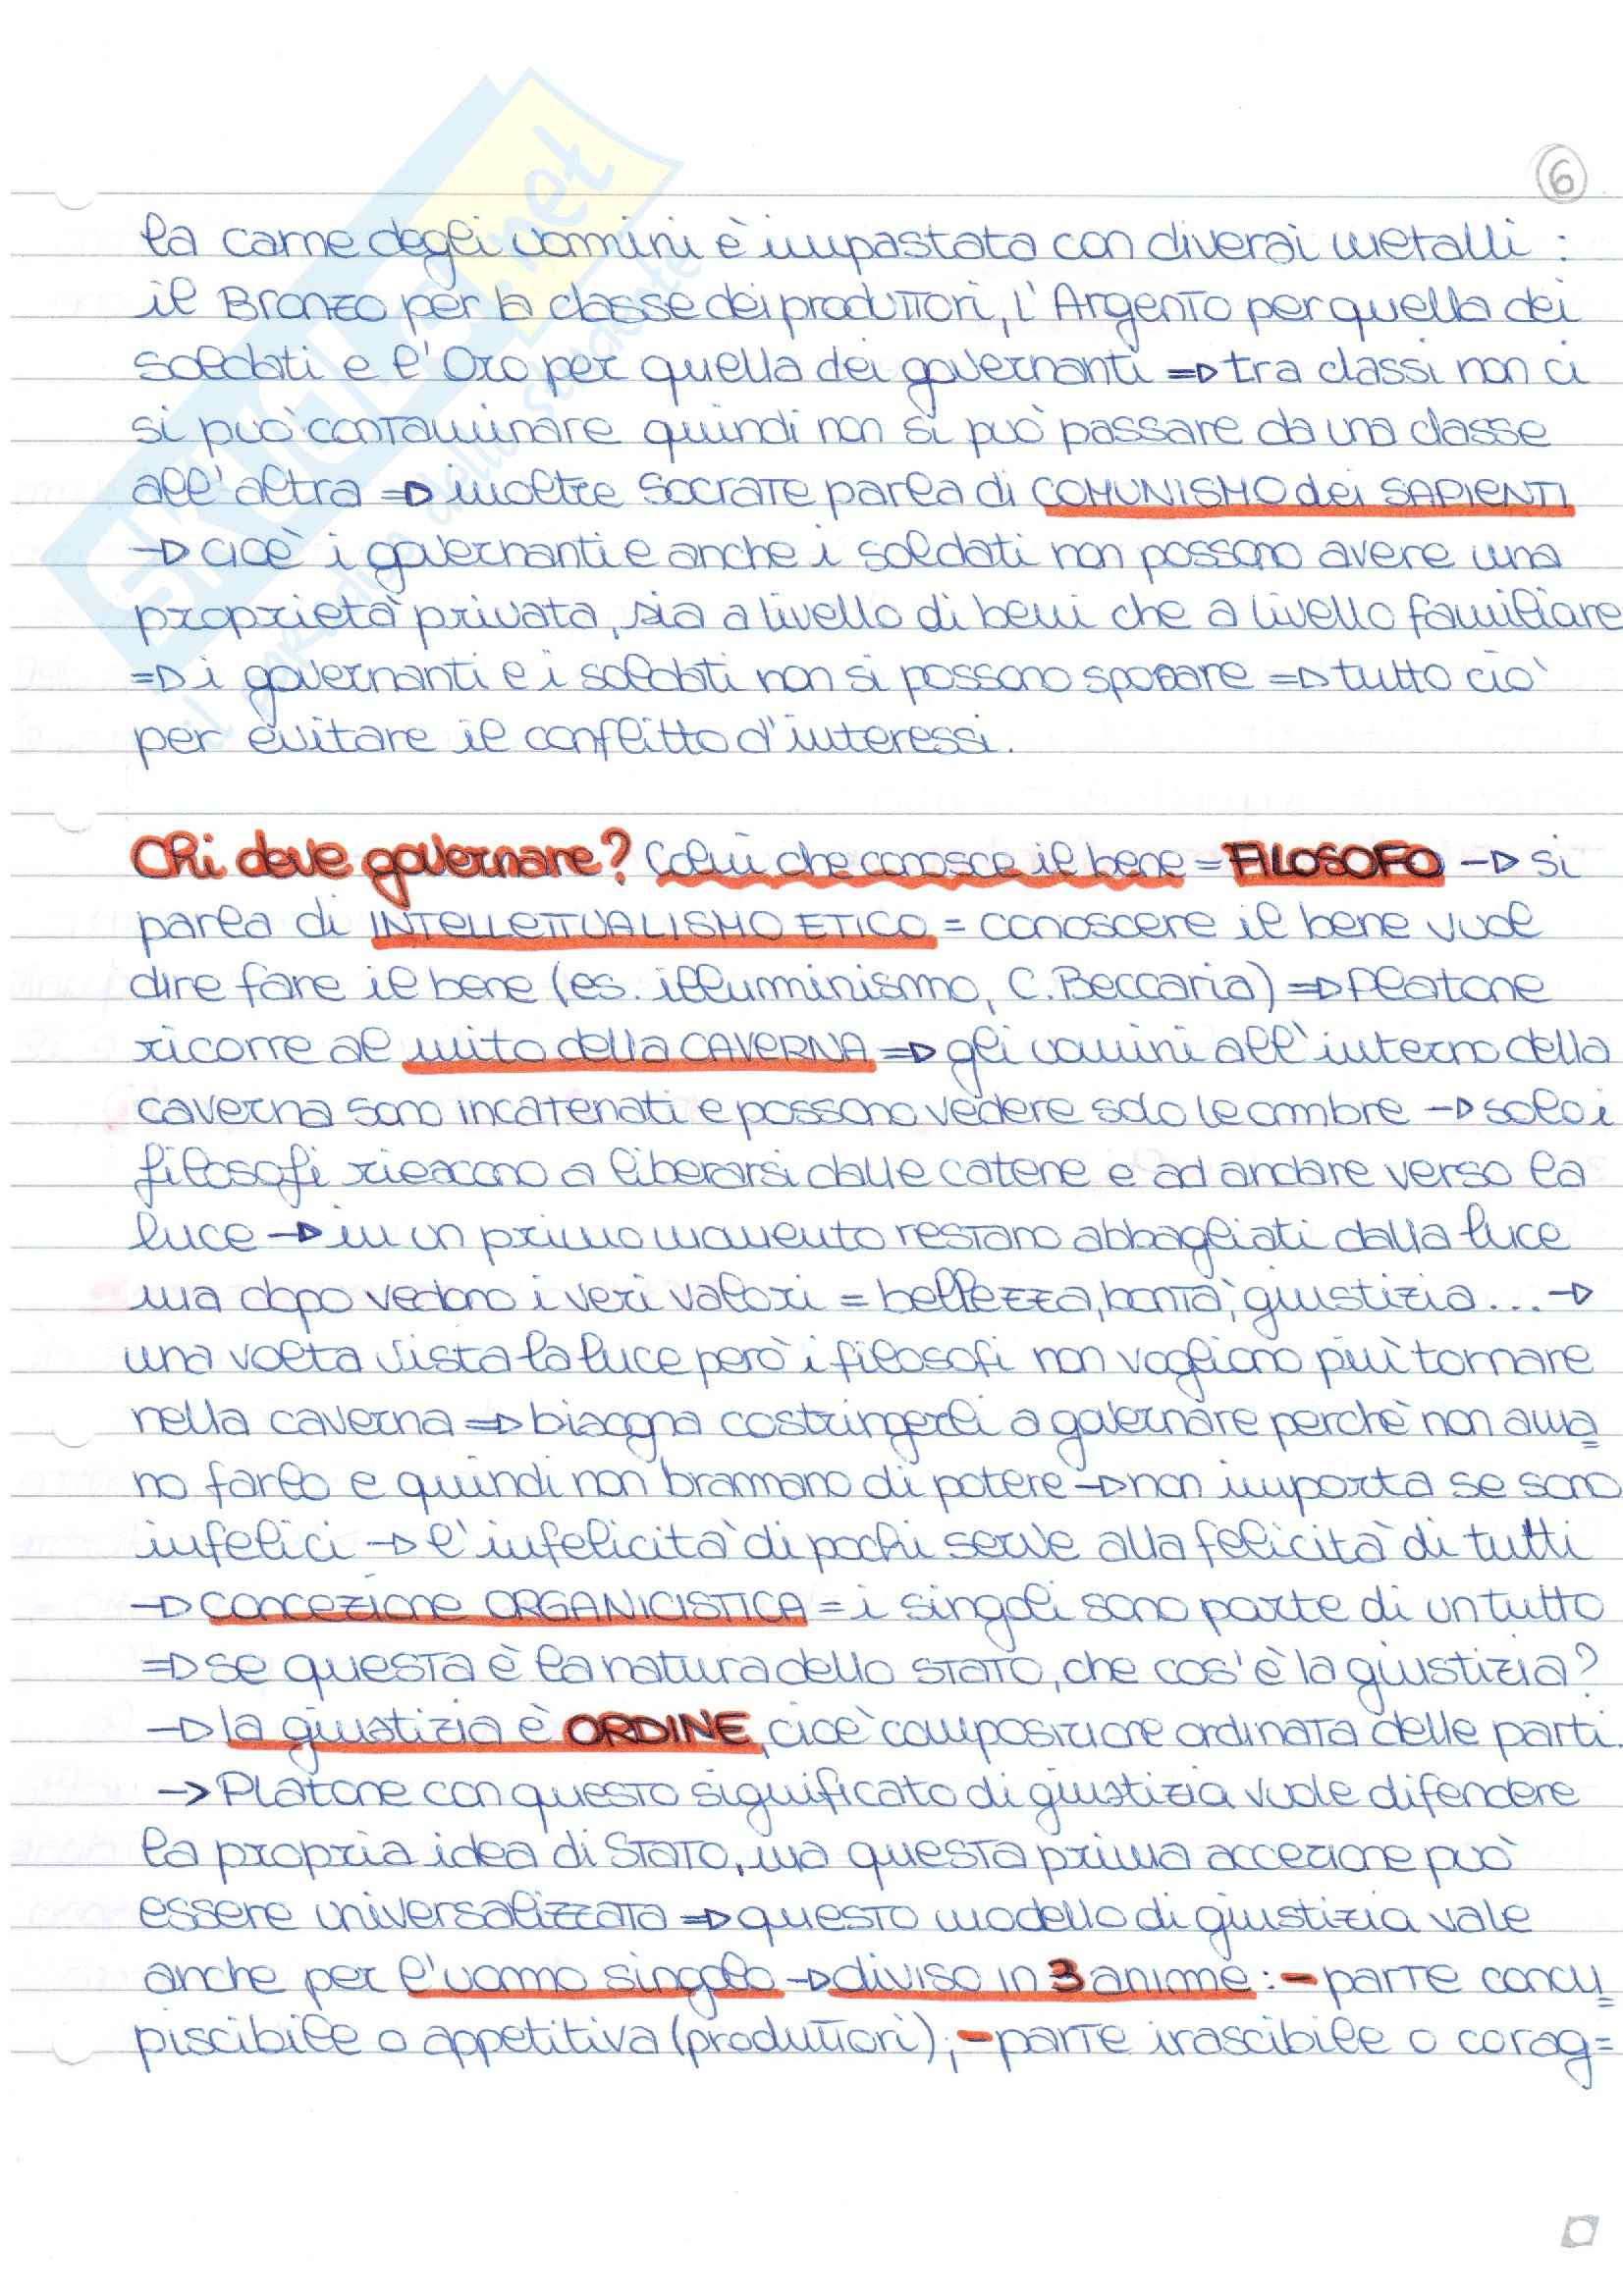 6
la carne degli uomini è impastata con diversi metalli :
il Bronzo per la classe dei produttori, l'Argento per quella dei
soldati e l'Oro per quella dei governanti => tra classi non ci
si può contaminare quindi non si può passare da una classe
all'altra => inoltre Socrate parla di COMUNISMO dei SAPIENTI
-> cioè i governanti e anche i soldati non possono avere una
proprietà privata, sia a livello di beni che a livello familiare
=> i governanti e i soldati non si possono sposare => tutto ciò
per evitare il conflitto d'interessi.
Chi deve governare? Colui che conosce il bene = FILOSOFO -> si
parla di INTELLETTUALISMO ETICO = conoscere il bene vuol
dire fare il bene (es. illuminismo, C. Beccaria) => Platone
ricorre al mito della CAVERNA => gli uomini all'interno della
caverna sono incatenati e possono vedere solo le ombre -> solo i
filosofi riescono a liberarsi dalle catene e ad andare verso la
luce -> in un primo momento restano abbagliati dalla luce
ma dopo vedono i veri valori = bellezza, bontà, giustizia... ->
una volta vista la luce però i filosofi non vogliono più tornare
nella caverna => bisogna costringerli a governare perchè non ama=
no farlo e quindi non bramano di potere -> non importa se sono
infelici -> l'infelicità di pochi serve alla felicità di tutti
-> concezione ORGANICISTICA = i singoli sono parte di un tutto
=> se questa è la natura dello STATO, che cos'è la giustizia?
-> la giustizia è ORDINE, cioè composizione ordinata delle parti.
-> Platone con questo significato di giustizia vuole difendere
la propria idea di STATO, ma questa prima accezione può
essere universalizzata => questo modello di giustizia vale
anche per l'uomo singolo -> diviso in 3 anime : - parte concu=
piscibile o appetitiva (produttori); - parte irascibile o corag=